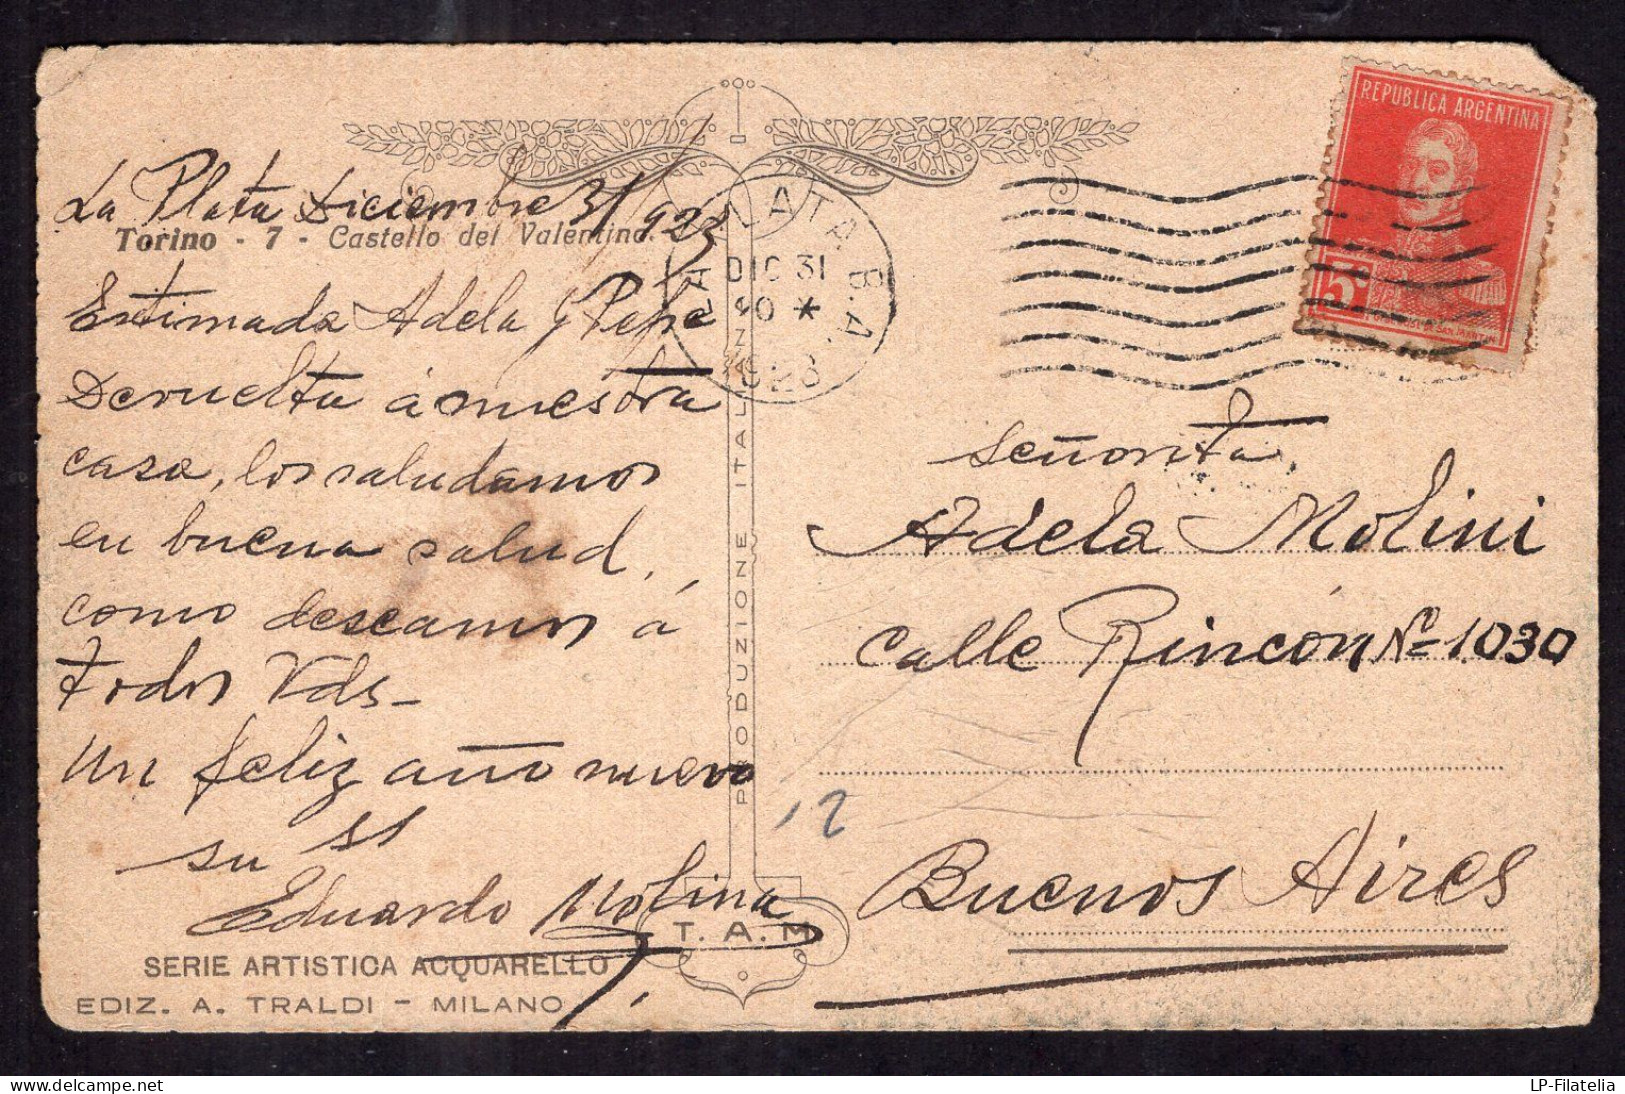 La Plata Diciembre 31/923
Torino - 7 - Castello del Valentino.
Estimada Adela y Pepe
Devuelta á nuestra
casa, los saludamos
en buena salud,
como deseamos á
todos Vds-
un feliz año nuevo
su SS
Eduardo Molina
SERIE ARTISTICA ACQUARELLO
EDIZ. A. TRALDI - MILANO
PRODUZIONE ITALIANA
T. A. M
LA PLATA B.A.
DIC 31
20 *
1923
REPUBLICA ARGENTINA
5c
Señorita,
Adela Molini
Calle Rincón Nº 1030
12
Buenos Aires
LP-Filatelia